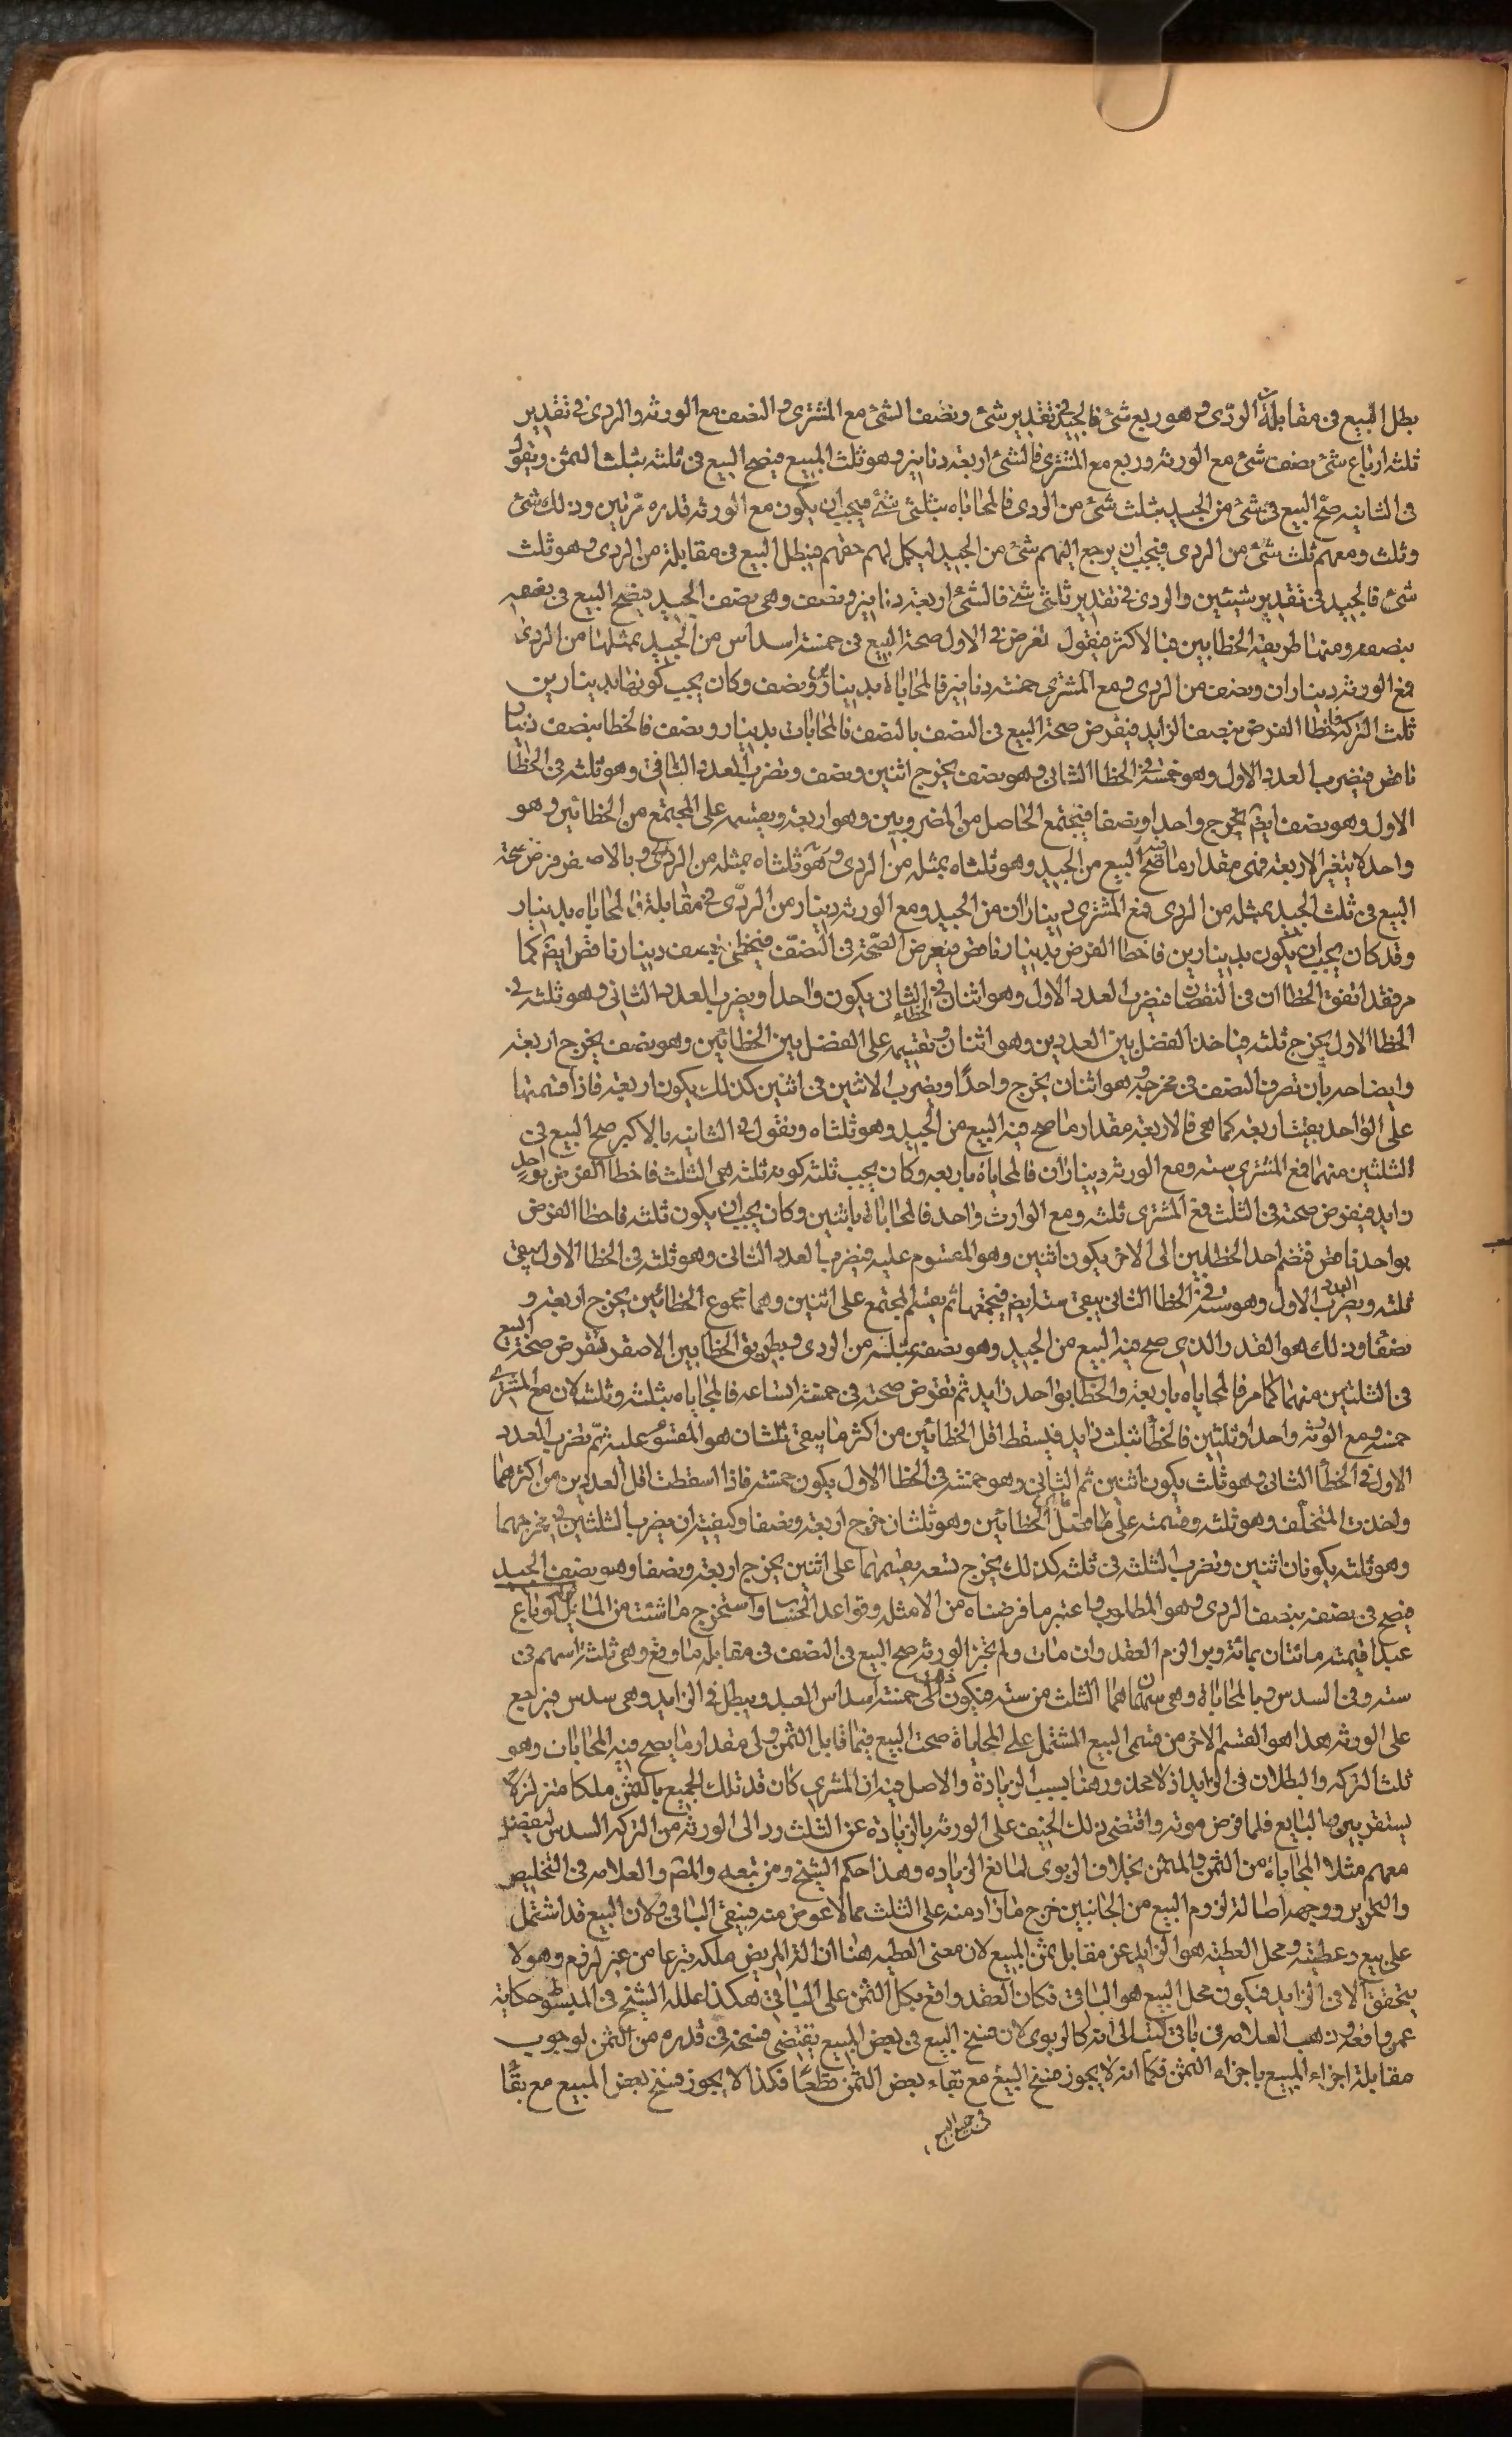 بطل البيع فى مقابلة الردّى وهو ربع شئ فالجيد فى تقدير شئ ونصف الشئ مع المشترى والنصف مع الورثه والردى فى تقدير
ثلثه ارباع شئ نصف شئ مع الورثه وربع مع المشترى فالشئ اربعة دنانير وهو ثلث المبيع فيصح البيع فى ثلثه بثلث الثمن ونقول
فى الثانيه صحّ البيع فى شئ من الجيد بثلث شئ من الردى فالمحاباه بثلثى شئ فيجب ان يكون مع الورثه قدره مرّتين وذلك شئ
وثلث ومعهم ثلث شئ من الردى فيجب ان يرجع اليهم شئ من الجيد ليكمل لهم حقهم فيبطل البيع فى مقابلة من الردى وهو ثلث
شئ فالجيد فى تقدير شيئين والردى فى تقدير ثلثى شئ فالشئ اربعة دنانير ونصف وهى نصف الجيد فيصح البيع فى نصفه
بنصفه ومنها طريقة الخطايين فبالاكثر فيقول نفرض فى الاول صحة البيع فى خمسة اسداس من الجيد بمثلها من الردى
فمع الورثه ديناران ونصف من الردى ومع المشترى خمسة دنانير فالمحاباة بدينارين ونصف وكان يجب كونها بدينارين
ثلث التركه فاخطا الفرض بنصف الزايد فيفرض صحة البيع فى النصف بالنصف فالمحابات بدينار ونصف فالخطا بنصف دينار
ناقص فيضرب العدد الاول وهو خمسة فى الخطا الثانى وهو نصف يخرج اثنين ونصف ونضرب العدد الثانى وهو ثلثه فى الخطا
الاول وهو نصف ايضم يخرج واحد او نصفا فيجتمع الحاصل من المضروبين وهو اربعة ويقسمه على المجتمع من الخطائين وهو
واحد لا يتغير الاربعه فهى مقدار ما صح فيه البيع من الجيد وهو ثلثاه بمثله من الردى وهو ثلثاه بمثله من الردى وبالاصغر فرض صحة
البيع فى ثلث الجيد بمثله من الردى فمع المشترى ديناران من الجيد ومع الورثه دينار من الردّى فى مقابلة فالمحاباه بدينار
وقد كان يجب ان يكون بدينارين فاخطا الفرض بدينار ناقص فيفرض الصّحة فى النصّف فيخطى بنصف دينار ناقص ايضم كما
مر فقد اتفق الخطاان فى النقصان فيضرب العدد الاول وهو اثنان فى الخطاء الثانى يكون واحدا ويضرب العدد الثانى وهو ثلثه فى
الخطا الاول يخرج ثلثه فياخذ الفضل بين العددين وهو اثنان وتقسيمه على الفضل بين الخطائين وهو نصف يخرج اربعة
وايضاحه بان تصرف النصف فى مخرجه وهو اثنان يخرج واحدًا ويضرب الاثنين فى اثنين كذلك يكون اربعة فاذا قسمتها
على الواحد بقيت اربعة كما هى فالاربعة مقدار ما صح فيه البيع من الجيد وهو ثلثاه ونقول فى الثانيه بالاكبر صح البيع فى
الثلثين منهما فمع المشترى سته ومع الورثه ديناران فالمحاباة باربعه وكان يجب ثلثه كونه ثلثه هى الثلث فاخطا الفرض بواحد
زايد فيفرض صحته فى الثلث فمع المشترى ثلثه ومع الوارث واحد فالمحاباة باثنين وكان يجب ان يكون ثلثه فاخطا الفرض
بواحد ناقص فتضم احد الخطايين الى الاخر يكون اثنين وهو المقسوم عليه فيضرب العدد الثانى وهو ثلثه فى الخطا الاول يبقى
ثلثه ويضرب العدد الاول وهو سته فى الخطا الثانى يبقى سته ايضم فيجمعها ثم يقسم المجتمع على اثنين وهما مجموع الخطائين يخرج اربعة و
نصفًا وذلك هو القدر والذى صح فيه البيع من الجيد وهو نصفه بمثله من الردى وبطريق الخطايين الاصغر نفرض صحة البيع
فى الثلثين منهما كما مر فالمحاباه باربعة والخطا بواحد زايد ثم نفرض صحته فى خمسة اتساعه فالمحاباه بثلثه وثلث لان مع المشترى
خمسه ومع الورثه واحدا وثلثين فالخطأ بثلث زايد فيسقط اقل الخطائين من اكثر ما يبقى ثلثان هو المقسوم عليه ثمّ نضرب العدد
الاول فى الخطأ الثانى وهو ثلث يكون اثنين ثم الثانى وهو خمسة فى الخطا الاول يكون خمسة فاذا اسقطت اقل العددين من اكثرهما
واخذت المتخلّف وهو ثلثه وقسمته على ما فضل الخطائين وهو ثلثان خرج اربعة ونصفا وكيفيته ان يضرب الثلثين فى مخرجهما
وهو ثلثه يكونان اثنين ونضرب الثلثه فى ثلثه كذلك يخرج تسعه يقسمهما على اثنين يخرج اربعة ونصفا وهو نصف الجيد
فيصح فى نصفه بنصف الردى وهو المطلوب واعتبر ما فرضناه من الامثله وقواعد الحساب واستخرج ما شئت من المسايل ولو باع
عبدا قيمته مائتان بمائة وبرا لزم العقد وان مات ولم تجز الورثه صح البيع فى النصف فى مقابله ما دفع وهى ثلثة اسهم فى
سته وفى السدس وبالمحاباة وهى سهمان هما الثلث من سته فيكون ذلك خمسة اسداس العبد ويبطل فى الزايد وهى سدس فيراجع
على الورثه هذا هو القسم الاخر من قسمى البيع المشتمل على المحاباة صحت البيع فيما قابل الثمن وفى مقدار ما يصح فيه المحابات وهو
ثلث التركه والبطلان فى الزايد اذ لا محذور هنا بسبب الزيادة والاصل فيه ان المشترى كان قد تلك الجميع بالثمن ملكا متزلزلًا
يستقر ببرء البايع فلما فرض موته واقتضى ذلك الحيف على الورثه بالزيادة عن الثلث رد الى الورثه من التركه السدس ليفيض
معهم مثلا المحاباة من الثمن والمثمن بخلاف الربوى لمانع الزياده وهذا حكم الشيخ ومن تبعه والمصّ والعلامه فى التخليص
والتحرير ووجهه اصالة لزوم البيع من الجانبين خرج ما زاد منه على الثلث مما لا عوض منه فيبقى الباقى ولان البيع قد اشتمل
على بيع وعطية ومحل العطية هو الزايد عن مقابل ثمن المبيع لان معنى العطيه هنا ازالة المريض ملكه تبرعا من غير لزوم وهو لا
يتحقق الا فى الزايد فيكون محل البيع هو الباقى فكان العقد واقع بكل الثمن على الباقى هكذا علله الشيخ فى المبسوط حكاية
عمن وافقه وذهب العلامه فى باقى كتبه الى انه كالربوى لان فسخ البيع فى بعض المبيع يقتضى فسخه فى قدره من الثمن لوجوب
مقابلة اجزاء المبيع باجزاء الثمن فكما انه لا يجوز فسخ البيع مع بقاء بعض الثمن قطعًا فكذا لا يجوز فسخ بعض المبيع مع بقا